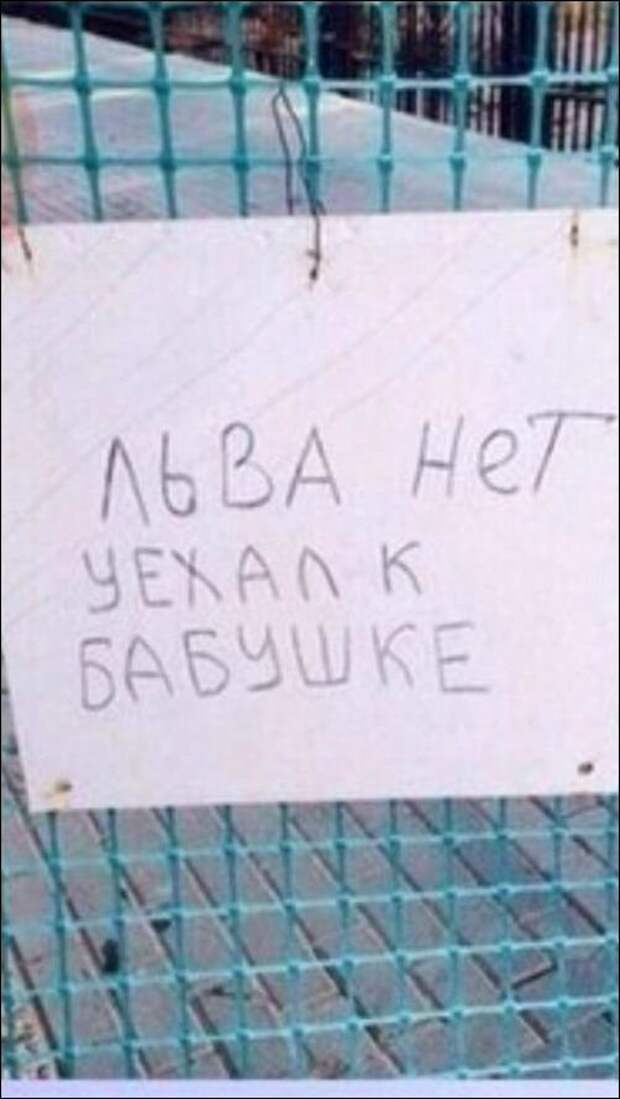 ЛЬВА НеТ
УЕХАЛ К
БАБУШКЕ